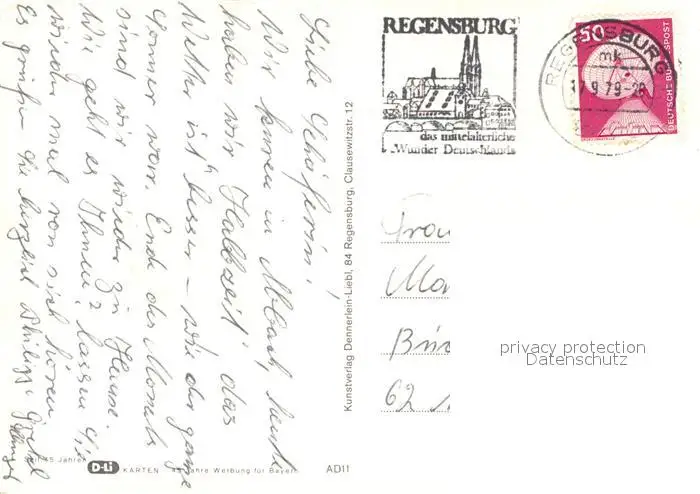 REGENSBURG
das mittelalterliche
Wunder Deutschlands
REGENSBURG
mk
17.9.79-28
50
DEUTSCHE BUNDESPOST
Liebe Schäferin!
Wir kuren in Abbach, heute
haben wir „Halbzeit" das
Wetter ist besser - wie der ganze
Sommer war. Ende des Monats
sind wir wieder zu Hause.
Wie geht es Ihnen? Lassen Sie
wieder mal von sich hören.
Es grüßen Sie herzlich Philipp
Frau
Ma
62
privacy protection
Datenschutz
Kunstverlag Dennerlein-Liebl, 84 Regensburg, Clausewitzstr. 12
Seit 45 Jahren
D-Li KARTEN 45 Jahre Werbung für Bayern
AD11